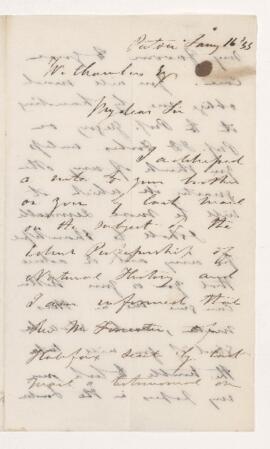 Pictou Jany 16 /55
W Chambers Esq
My dear Sir
I addressed
a note to your brother
or you by last mail
on the subject of the
Professorship of
Natural History and
I am informed that
the
Halifax sent by last
mail a testimonial on
my in the